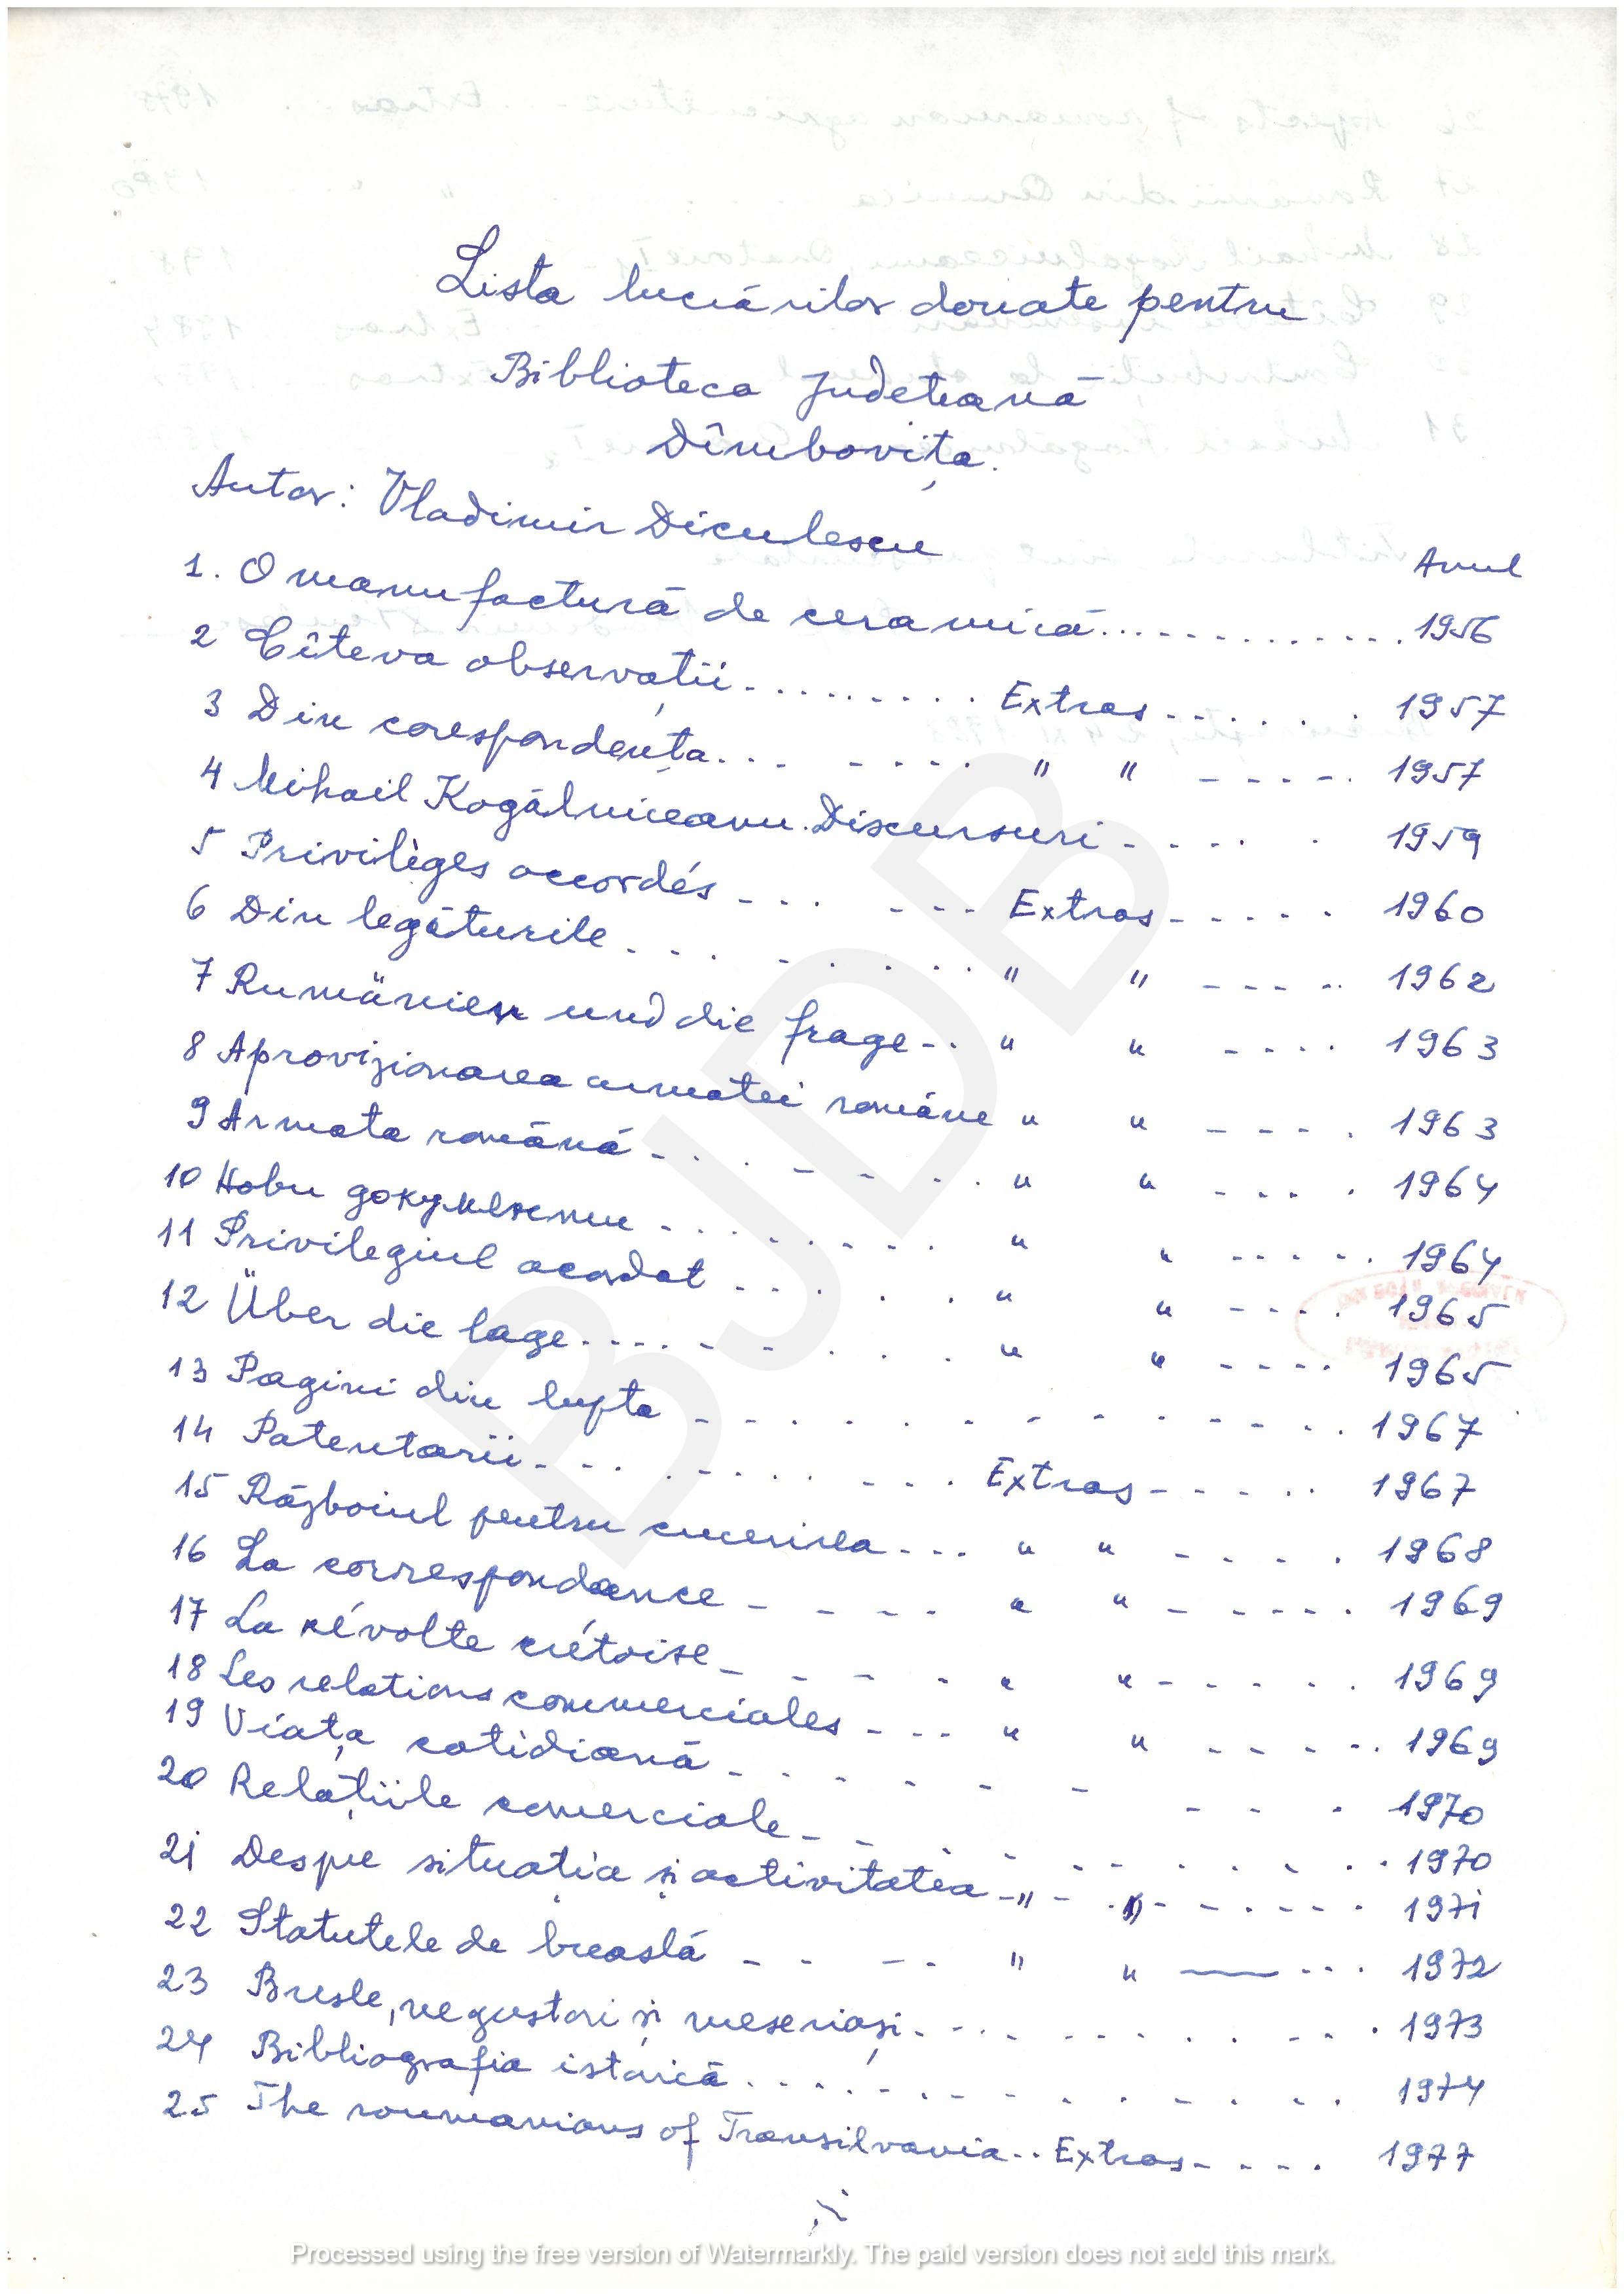 Lista lucrărilor donate pentru
Biblioteca Județeană
Dîmbovița.
Autor: Vladimir Diculescu
Anul
1. O manufactură de ceramică.............. 1956
2 Cîteva observații......... Extras...... 1957
3 Din corespondența... - - - - . " " - - - - . 1957
4 Mihail Kogălniceanu. Discursuri - - - . . 1959
5 Privilèges accordés - - . . - - - Extras - - - - . 1960
6 Din legăturile - . . . - . . . . . " " - - - - . 1962
7 Rumänien und die frage - . . " " - - - . . 1963
8 Aprovizionarea armatei române " " - - - - . 1963
9 Armata română - . . . - - - . . . " " - - - . 1964
10 Нови документи - . . . . - - - . " " - - - - . . 1964
11 Privilegiul acordat - - . . . . . " " - - - . 1965
12 Über die lage - . . . - - . . . " " - - - - 1965
13 Pagini din lupta - - . . . - - - - - . . 1967
14 Patentarii - . . . - . . . - - . Extras - - - - . . 1967
15 Războiul pentru cucerirea - . . . " " - - - - . 1968
16 La correspondance - - - - . " " - - - - - . 1969
17 La révolte crétoise - - - - - " " - - - - - . 1969
18 Les relations commerciales - - - . " " - - - - - . 1969
19 Viața cotidiană - . - - - - - - - - . 1970
20 Relațiile comerciale - - . - . - - . . . . 1970
21 Despre situația și activitatea - " - . " - - - - - - . 1971
22 Statutele de breaslă - - - - . " " — - - . 1972
23 Bresle, negustori și meseriași - . - . . - - . . . - - - . 1973
24 Bibliografia istorică . . . . . - . - - - . - . . . 1974
25 The roumanians of Transilvania . . Extras - - - . 1977
BJDB
Processed using the free version of Watermarkly. The paid version does not add this mark.